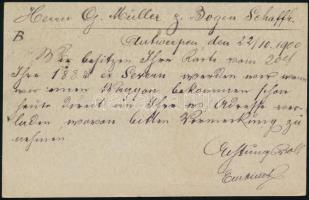 Herrn G. Müller z. Bogen Schaffh.
B
Antwerpen den 22/10. 1900
Wir besitzen Ihre Karte vom 20ct
Ihre 1888 werden wir wenn
wir einen Waggon bekommen schon
heute direct an Ihre Adresse ver-
laden wovon bitten Vormerkung zu
nehmen
Achtungsvoll